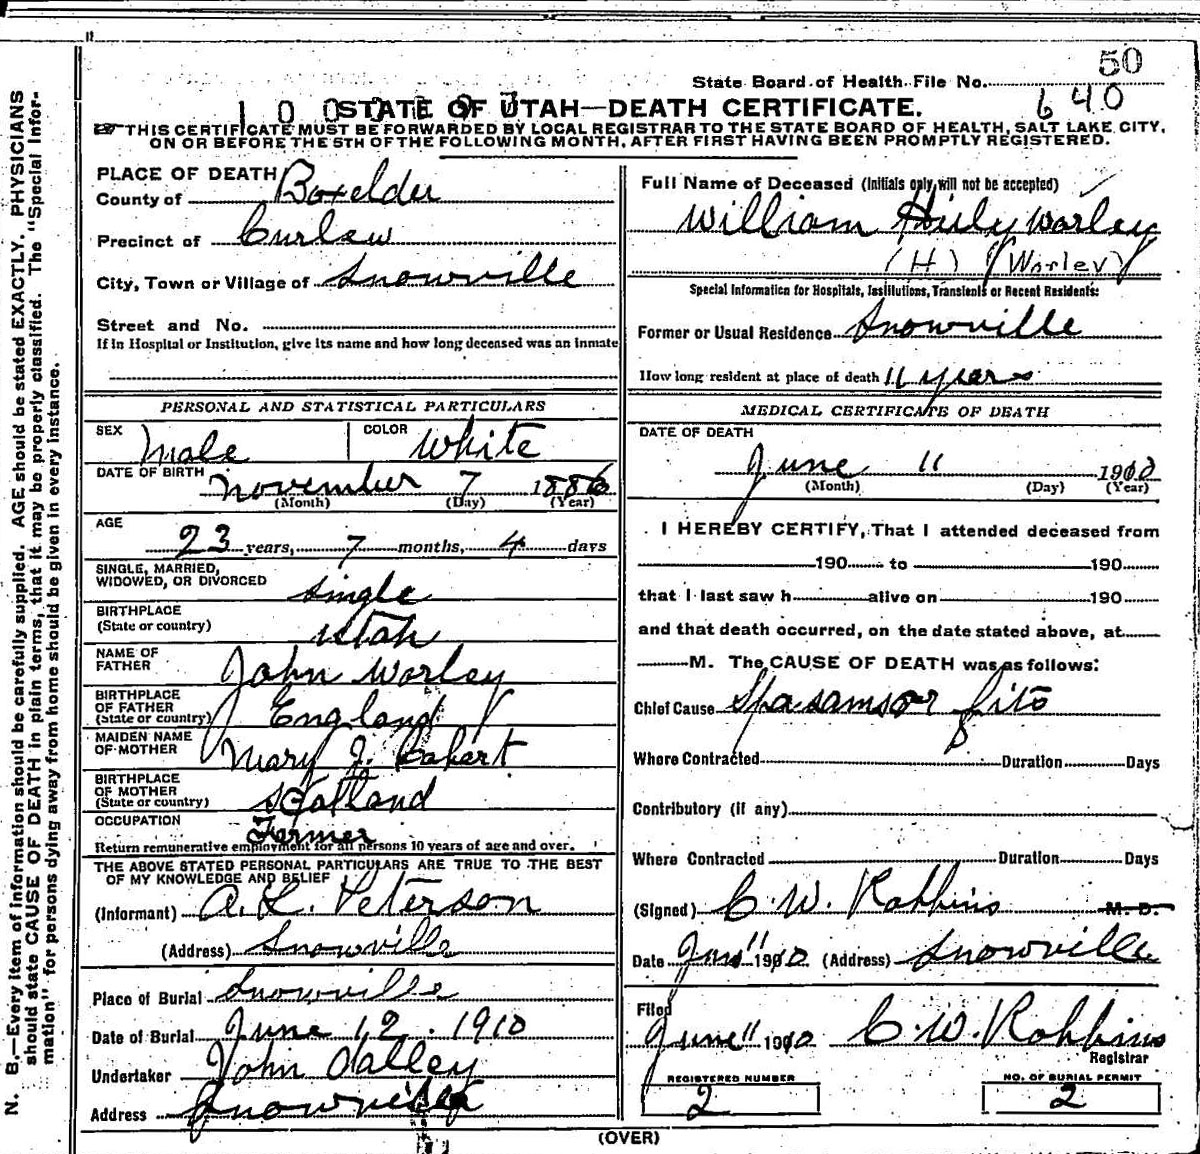 N. B.—Every item of information should be carefully supplied. AGE should be stated EXACTLY. PHYSICIANS
should state CAUSE OF DEATH in plain terms, that it may be properly classified. The "Special Infor-
mation" for persons dying away from home should be given in every instance.
50
State Board of Health File No.
640
STATE OF UTAH—DEATH CERTIFICATE.
THIS CERTIFICATE MUST BE FORWARDED BY LOCAL REGISTRAR TO THE STATE BOARD OF HEALTH, SALT LAKE CITY,
ON OR BEFORE THE 5TH OF THE FOLLOWING MONTH, AFTER FIRST HAVING BEEN PROMPTLY REGISTERED.
PLACE OF DEATH
County of Boxelder
Precinct of Curlew
City, Town or Village of Snowville
Street and No.
If in Hospital or Institution, give its name and how long deceased was an inmate
PERSONAL AND STATISTICAL PARTICULARS
SEX Male COLOR White
DATE OF BIRTH November 7 1886
(Month) (Day) (Year)
AGE
23 years, 7 months, 4 days
SINGLE, MARRIED,
WIDOWED, OR DIVORCED single
BIRTHPLACE
(State or country) Utah
NAME OF
FATHER John Worley
BIRTHPLACE
OF FATHER
(State or country) England
MAIDEN NAME
OF MOTHER Mary J.
BIRTHPLACE
OF MOTHER
(State or country) Scotland
OCCUPATION
Farmer
Return remunerative employment for all persons 10 years of age and over.
THE ABOVE STATED PERSONAL PARTICULARS ARE TRUE TO THE BEST
OF MY KNOWLEDGE AND BELIEF
(Informant) A. L. Peterson
(Address) Snowville
Place of Burial Snowville
Date of Burial June 12. 1910
Undertaker John Oalley
Address Snowville
Full Name of Deceased (Initials only will not be accepted)
William Worley
(H) (Worley)
Special Information for Hospitals, Institutions, Transients or Recent Residents:
Former or Usual Residence Snowville
How long resident at place of death 11 years
MEDICAL CERTIFICATE OF DEATH
DATE OF DEATH
June 11 1910
(Month) (Day) (Year)
I HEREBY CERTIFY, That I attended deceased from
190 to 190
that I last saw h alive on 190
and that death occurred, on the date stated above, at
M. The CAUSE OF DEATH was as follows:
Chief Cause Spasams or fits
Where Contracted Duration Days
Contributory (if any)
Where Contracted Duration Days
(Signed) C. W. Robbins M. D.
Date 11 1910 (Address) Snowville
Filed
June 11 1910 C. W. Robbins
Registrar
REGISTERED NUMBER
2
NO. OF BURIAL PERMIT
2
(OVER)